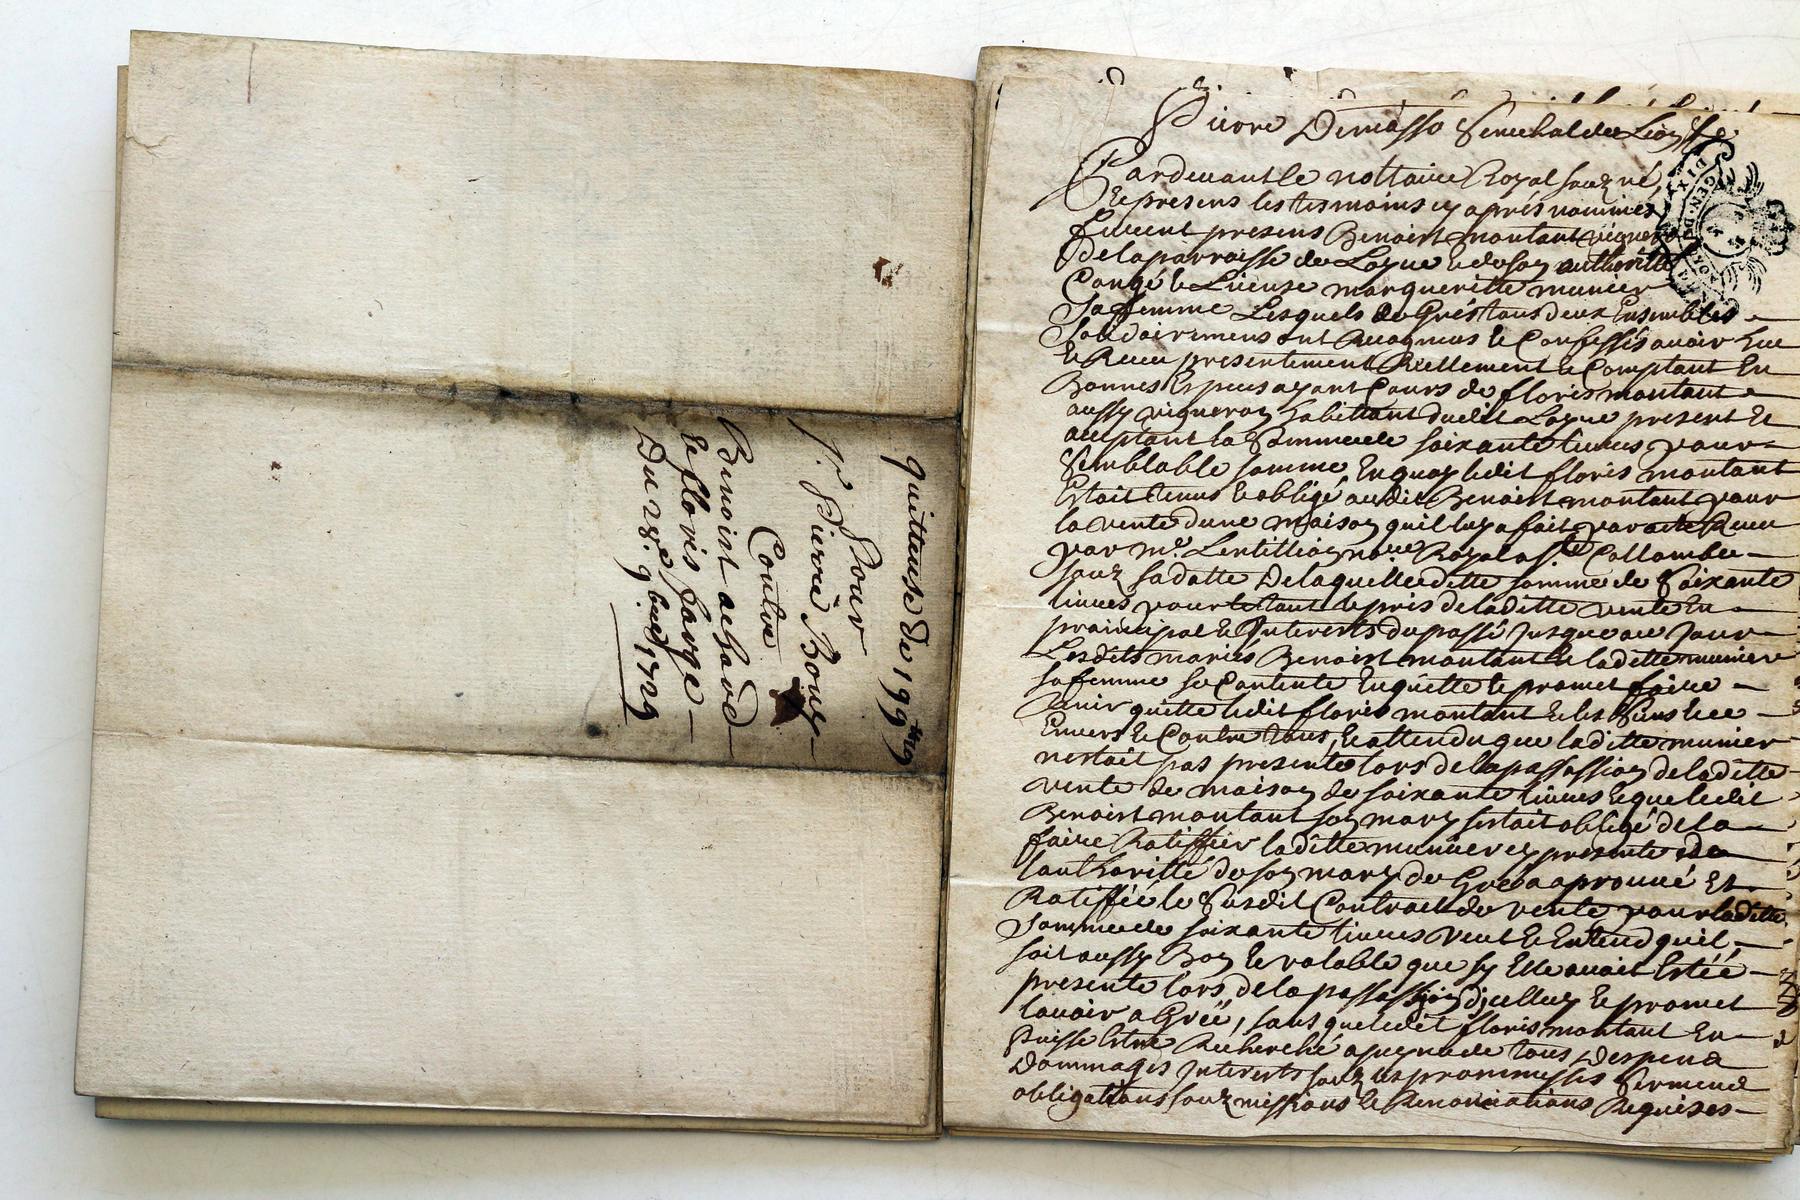 quittense de 199 ₶ 19
Pour
Sr. Pierre Bouy
Contre
Benoist achard
et floris farge
Du 28e. 9bre 1729
Pierre Demasso Senechal de Lion
Pardevant le nottaire Royal souz né,
Et presens les tesmoins cy aprés nommés
furent presens Benoist montant vigneron
de la parroisse de Logne et de son authoritté
Congé et License margueritte munier
Sa femme Lesquels de Gré tous deux Ensembles
Solidairement ont Recognus et Confessés avoir Eue
et Receu presentement Réellement et Comptant En
Bonnes Especes ayant Cours de floris montant
aussy vigneron habittant dudit Logne present Et
acceptant la Somme de soixante livres pour
Semblable somme En quoy ledit floris montant
Estoit tenus et obligé audit Benoist montant pour
la vente dune maison quil luy a fait par acte Receu
par me. Lentillion nore Royal a St Collombe
souz sa datte De laquelle ditte somme de Soixante
livres pour le tout le pris de laditte vente En
principal et Interests du passé Jusque au Jour
Lesdits mariés Benoist montant et laditte munier
sa femme se Contente En quitte et promet faire
tenir quitte ledit floris montant et les siens
Envers et Contre tous, et attendu que laditte munier
nestoit pas presente lors de la passassion de laditte
vente de maison de soixante livres et que ledit
Benoist montant son mary sestoit obligé de la
faire Ratiffier laditte munier cy presente de
lauthoritté de son mary de Gré a aprouvé Et
Ratiffié le Susdit Contract de vente pour laditte
Somme de soixante livres veut et Entend quil
soit aussy Bon et valable que sy Elle avoit Estéé
presente lors de la passassion djcelluy et promet
lavoir a Gréé, sans que ledit floris montant En
Puisse Estre Recherché a peyne de tous Despend
Dommages Interests souz les prommesses Serment
obligations souzmissions et Renonciations Requises